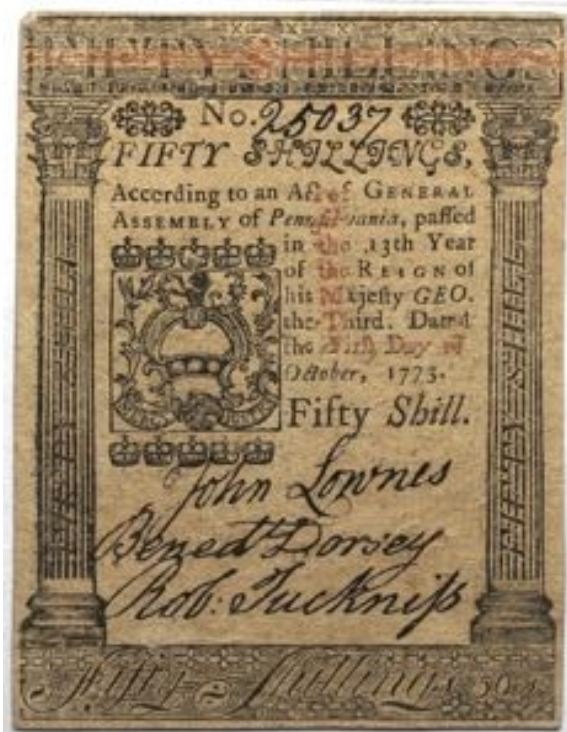 FIFTY SHILLINGS
No. 25037
FIFTY SHILLINGS,
According to an Act of GENERAL
ASSEMBLY of Pennſylvania, paſſed
in the 13th Year
of the REIGN of
his Majeſty GEO.
the Third. Dated
the Firſt Day of
October, 1773.
Fifty Shill.
John Lownes
Bened Dorsey
Rob: Tuckniſs
Fifty Shillings 50s
FIFTY SHILLINGS